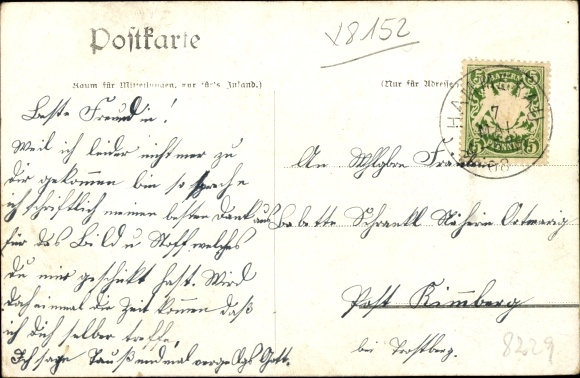 Postkarte
18152
Raum für Mitteilungen, nur für's Inland.)
(Nur für Adresse
BAYERN
5 5
PFENNIG
5 5
Beste Freundin!
Weil ich leider nicht mer zu
dir gekommen bin so spreche
ich schriftlich meinen besten Dank aus
für das Bild u Stoff welches
du mir geschickt hast. Wird
doch einmal die Zeit kommen daß
ich dich selber treffe,
Ich sage Taußendmal vergelts Gott.
An Wohlgbre Fräulein
Babette Schrankl Näherin Ortmaring
Post Kimberg
bei Trostberg.
8229